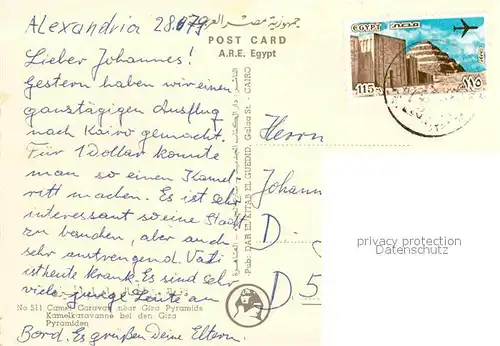 Alexandria 28.6.79
جمهورية مصر العربية
POST CARD
A.R.E. Egypt
EGYPT مصر
115 ١١٥
Lieber Johannes!
Gestern haben wir einen
ganztägigen Ausflug
nach Kairo gemacht.
Für 1 Dollar konnte
man so einen Kamel-
ritt machen. Es ist sehr
interessant so eine Stadt
zu
aber auch
sehr anstrengend. Vati
ist heute krank. Es sind sehr
viele junge Leute an
Bord. Es grüßen Deine Eltern.
Herrn
Johann
D.
D 5
Pub.: DAR EL KITAB EL GUEDID, Galaa St. CAIRO
No 511 Camel Caravan near Giza Pyramids
Kamelkaravanne bei den Giza
Pyramiden
privacy protection
Datenschutz